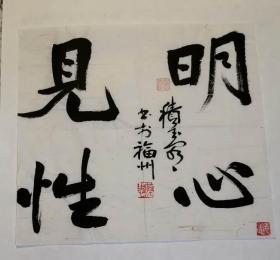 明心
見性
書於福州